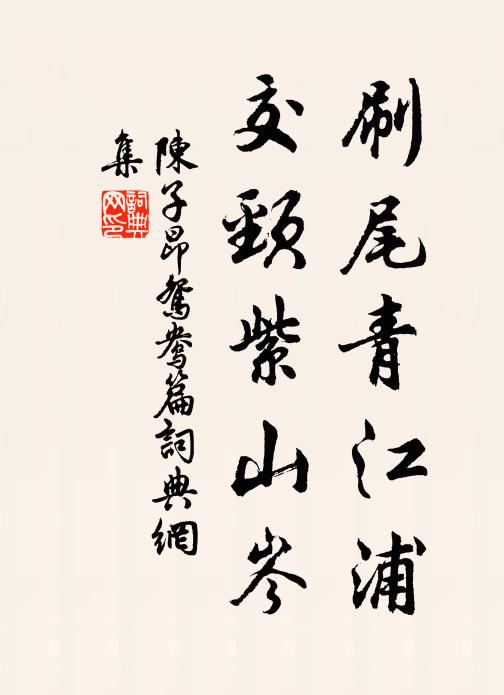 刷尾青江浦
交頸紫山岑
陳子昂鴛鴦篇詞典網
集
詞典網印